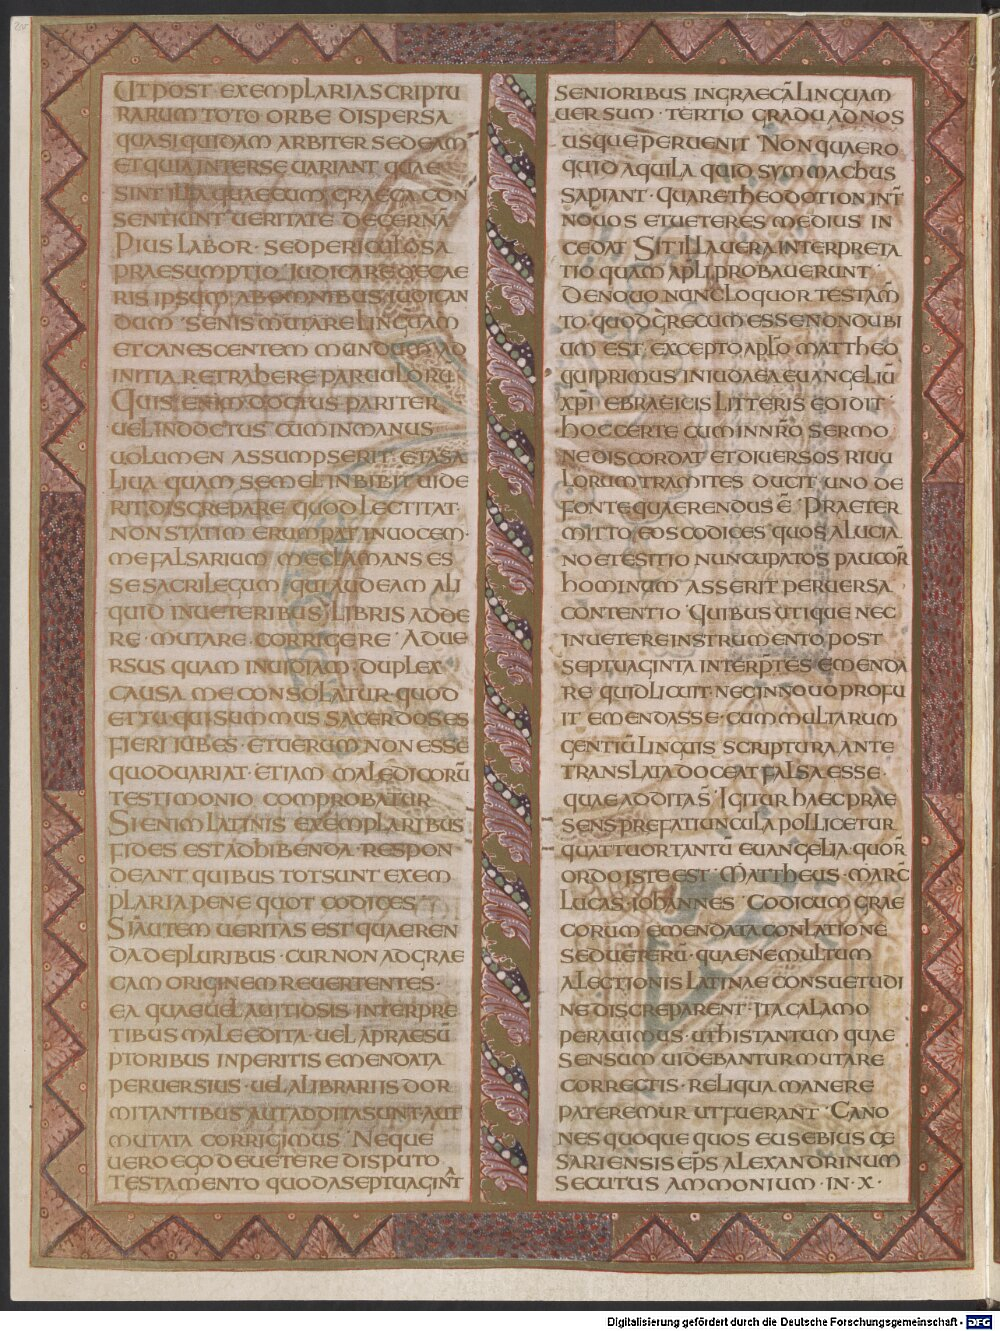 UT POST EXEMPLARIA SCRIPTU
RARUM TOTO ORBE DISPERSA
QUASI QUIDAM ARBITER SEDEAM
ET QUIA INTER SE UARIANT QUAE
SINT ILLA QUAE CUM GRAECA CON
SENTIUNT UERITATE DECERNA
PIUS LABOR · SED PERICULOSA
PRAESUMPTIO · IUDICARE DE CAE
RIS IPSUM AB OMNIBUS IUDICAN
DUM · SENIS MUTARE LINGUAM
ET CANESCENTEM MUNDUM AD
INITIA RETRAHERE PARUULORŪ
QUIS ENIM DOCTUS PARITER
UEL INDOCTUS CUM IN MANUS
UOLUMEN ASSUMPSERIT · ET A SA
LIUA QUAM SEMEL INBIBIT UIDE
RIT DISCREPARE QUOD LECTITAT ·
NON STATIM ERUMPAT IN UOCEM ·
ME FALSARIUM ME CLAMANS ES
SE SACRILEGUM QUI AUDEAM ALI
QUID IN UETERIBUS LIBRIS ADDE
RE · MUTARE · CORRIGERE · ADUE
RSUS QUAM INUIDIAM · DUPLEX
CAUSA ME CONSOLATUR · QUOD
ET TU QUI SUMMUS SACERDOS ES
FIERI IUBES · ET UERUM NON ESSE
QUOD UARIAT · ETIAM MALEDICORŪ
TESTIMONIO COMPROBATUR
SI ENIM LATINIS EXEMPLARIBUS
FIDES EST ADHIBENDA · RESPON
DEANT QUIBUS TOT SUNT EXEM
PLARIA PENE QUOT CODICES ·
SI AUTEM UERITAS EST QUAEREN
DA DE PLURIBUS · CUR NON AD GRAE
CAM ORIGINEM REUERTENTES ·
EA QUAE UEL A UITIOSIS INTERPRE
TIBUS MALE EDITA · UEL A PRAESŪ
PTORIBUS INPERITIS EMENDATA
PERUERSIUS · UEL A LIBRARIIS DOR
MITANTIBUS AUT ADDITA SUNT AUT
MUTATA CORRIGIMUS · NEQUE
UERO EGO DE UETERE DISPUTO
TESTAMENTO QUOD A SEPTUAGINTA
SENIORIBUS IN GRAECĀ LINGUAM
UERSUM · TERTIO GRADU AD NOS
USQUE PERUENIT · NON QUAERO
QUID AQUILA QUID SYMMACHUS
SAPIANT · QUARE THEODOTION INT̄
NOUOS ET UETERES MEDIUS IN
CEDAT SIT ILLA UERA INTERPRETA
TIO QUAM APL̄I PROBAUERUNT ·
DE NOUO NUNC LOQUOR TESTAM̄
TO QUOD GRECUM ESSE NON DUBI
UM EST · EXCEPTO APL̄O MATTHEO
QUI PRIMUS IN IUDAEA EUANGELIŪ
XP̄I EBRAEICIS LITTERIS EDIDIT ·
HOC CERTE CUM IN NR̄O SERMO
NE DISCORDAT ET DIUERSOS RIUU
LORUM TRAMITES DUCIT UNO DE
FONTE QUAERENDUS Ē · PRAETER
MITTO EOS CODICES QUOS A LUCIA
NO ET ESITIO NUNCUPATOS PAUCOR̄
HOMINUM ASSERIT PERUERSA
CONTENTIO · QUIBUS UTIQUE NEC
IN UETERE INSTRUMENTO POST
SEPTUAGINTA INTERP̄TES EMENDA
RE QUID LICUIT · NEC IN NOUO PROFU
IT EMENDASSE · CUM MULTARUM
GENTIŪ LINGUIS SCRIPTURA ANTE
TRANSLATA DOCEAT FALSA ESSE ·
QUAE ADDITA S̄ · IGITUR HAEC PRAE
SENS PREFATIUNCULA POLLICETUR
QUATTUOR TANTŪ EUANGELIA QUOR̄
ORDO ISTE EST · MATTHEUS · MARC̄
LUCAS · IOHANNES · CODICUM GRAE
CORUM EMENDATA CONLATIONE
SED UETERŪ · QUAE NE MULTUM
A LECTIONIS LATINAE CONSUETUDI
NE DISCREPARENT · ITA CALAMO
PERAUIMUS · UT HIS TANTUM QUAE
SENSUM UIDEBANTUR MUTARE
CORRECTIS · RELIQUA MANERE
PATEREMUR UT FUERANT · CANO
NES QUOQUE QUOS EUSEBIUS CE
SARIENSIS EP̄S ALEXANDRINUM
SECUTUS AMMONIUM · IN · X ·
Digitalisierung gefördert durch die Deutsche Forschungsgemeinschaft - DFG